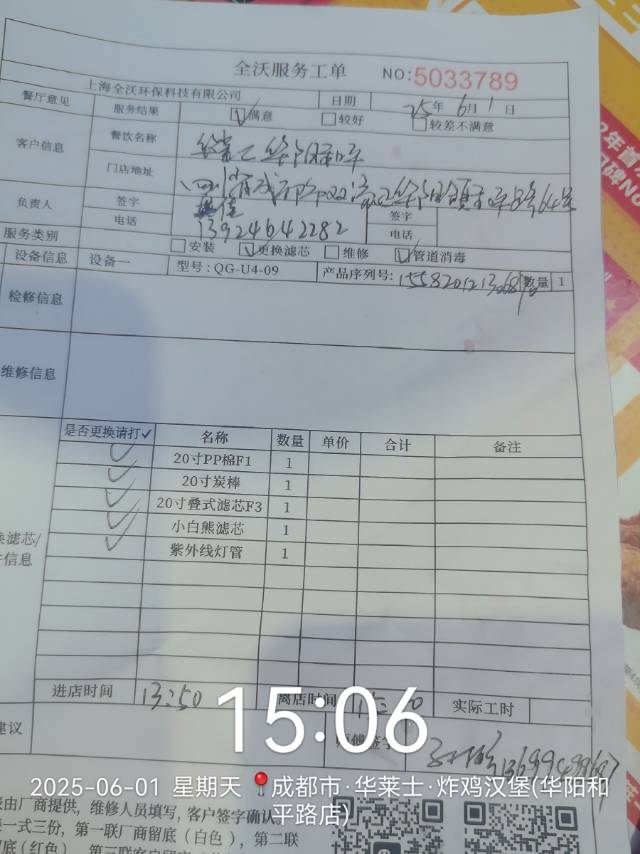 全沃服务工单 NO:5033789
上海全沃环保科技有限公司 日期 25年6月1日
餐厅意见 服务结果 满意 较好 较差不满意
客户信息 餐饮名称
门店地址
负责人 签字 签字
电话 13924642282 电话
服务类别 安装 更换滤芯 维修 管道消毒
设备信息 设备一 型号:QG-U4-09 产品序列号: 数量 1
检修信息
维修信息
是否更换请打✓ 名称 数量 单价 合计 备注
✓ 20寸PP棉F1 1
✓ 20寸炭棒 1
✓ 20寸叠式滤芯F3 1
✓ 小白熊滤芯 1
✓ 紫外线灯管 1
换滤芯/
件信息
进店时间 13:50 离店时间 实际工时
建议
15:06
2025-06-01 星期天 成都市·华莱士·炸鸡汉堡(华阳和平路店)
由厂商提供，维修人员填写，客户签字确认。
一式三份，第一联厂商留底（白色），第二联